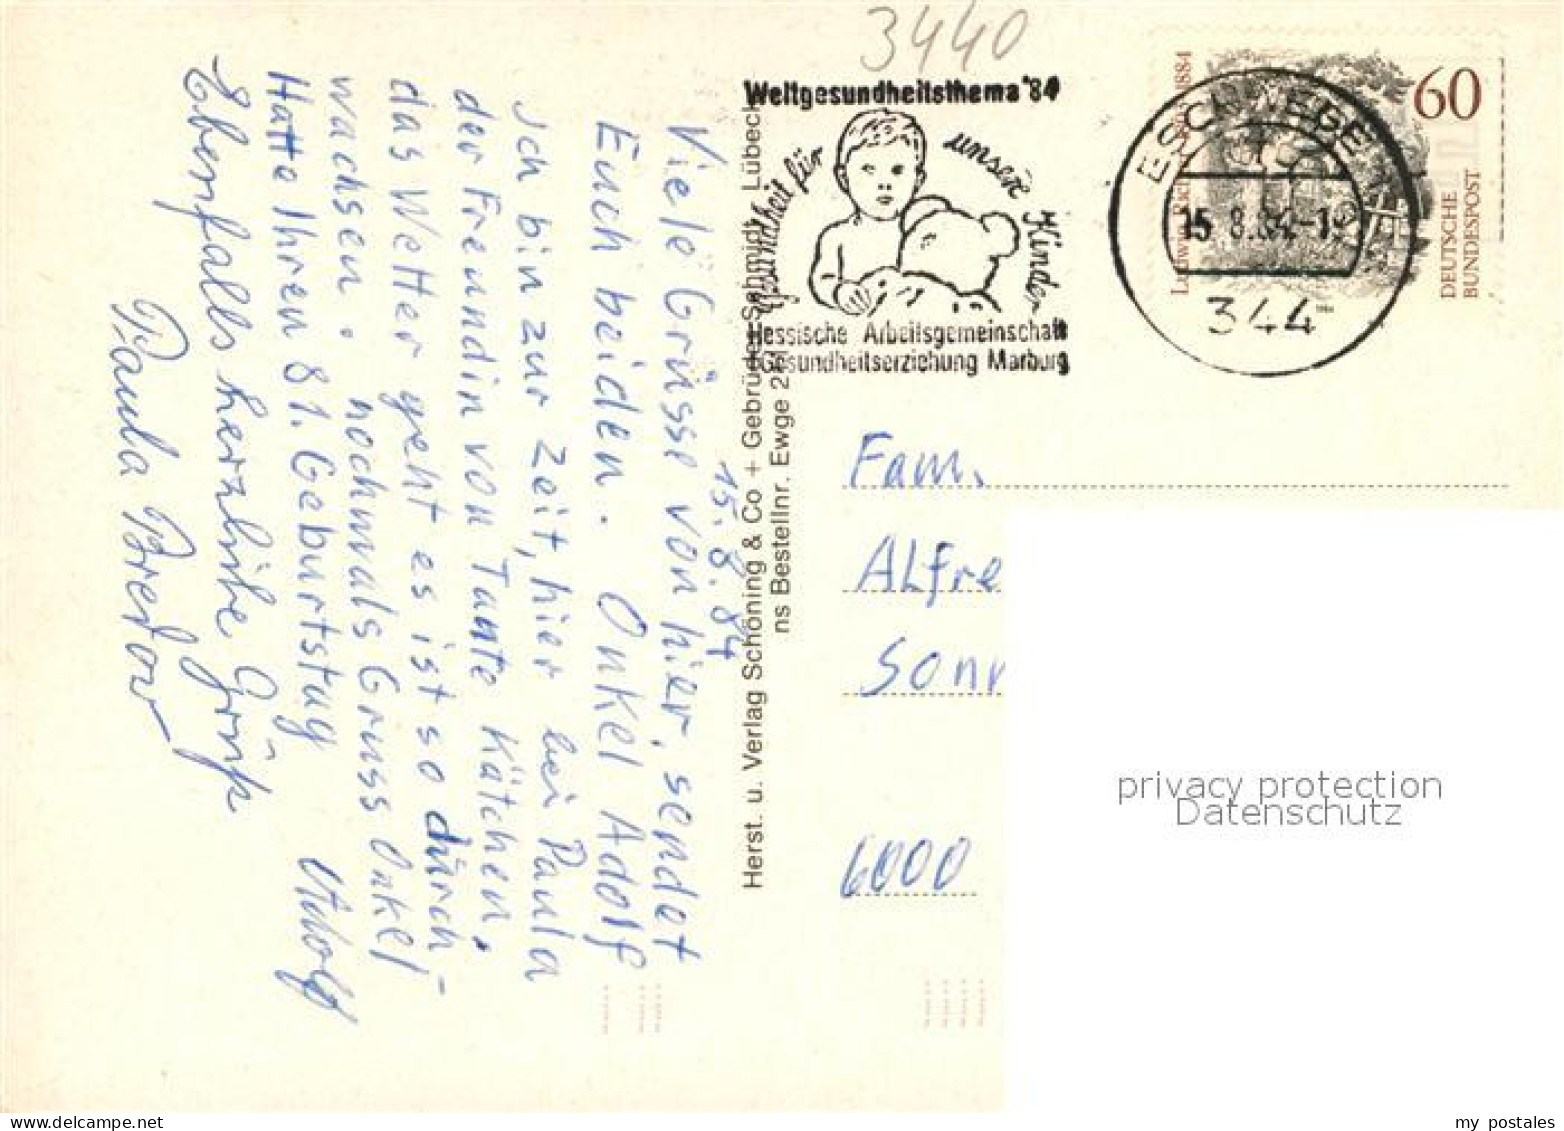 3440
Weltgesundheitsthema '84
Gesundheit für unsere Kinder
Hessische Arbeitsgemeinschaft
Gesundheitserziehung Marburg
ESCHWEGE 1
15.8.84-1
344
60
DEUTSCHE
BUNDESPOST
Ludwig Richter 1884
15.8.84
Viele Grüsse von hier, sendet
Euch beiden. Onkel Adolf
Ich bin zur Zeit, hier bei Paula
der Freundin von Tante Kätchen.
das Wetter geht es ist so durch-
wachsen. nochmals Gruss Onkel
Hatte Ihren 81. Geburtstag Adolf
Ebenfalls herzliche Grüße
Paula Bredow
Herst. u. Verlag Schöning & Co + Gebrüder Schmidt, Lübeck
ns Bestellnr. Ewge 2
Fam.
ALfre
Sonn
6000
privacy protection
Datenschutz
my postales